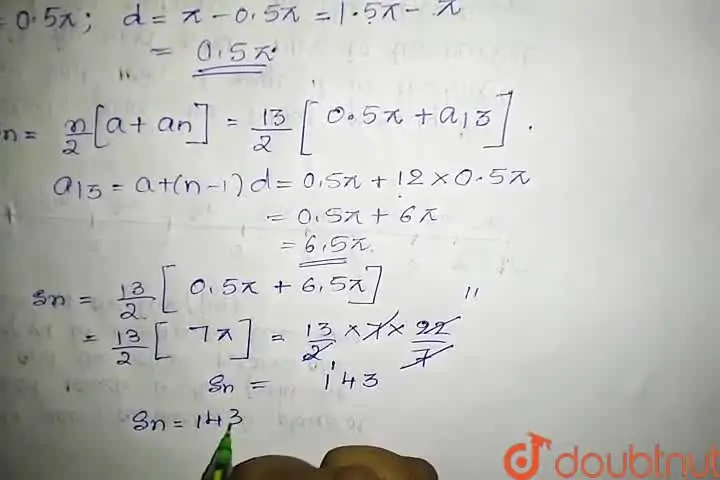 = 0.5π; d = π - 0.5π = 1.5π - π
= 0.5π
n = n/2 [a + an] = 13/2 [0.5π + a13].
a13 = a+(n-1)d = 0.5π + 12 × 0.5π
= 0.5π + 6π
= 6.5π
Sn = 13/2 [0.5π + 6.5π]
= 13/2 [7π] = 13/2 × 7 × 22/7
Sn = 143
Sn = 143
doubtnut